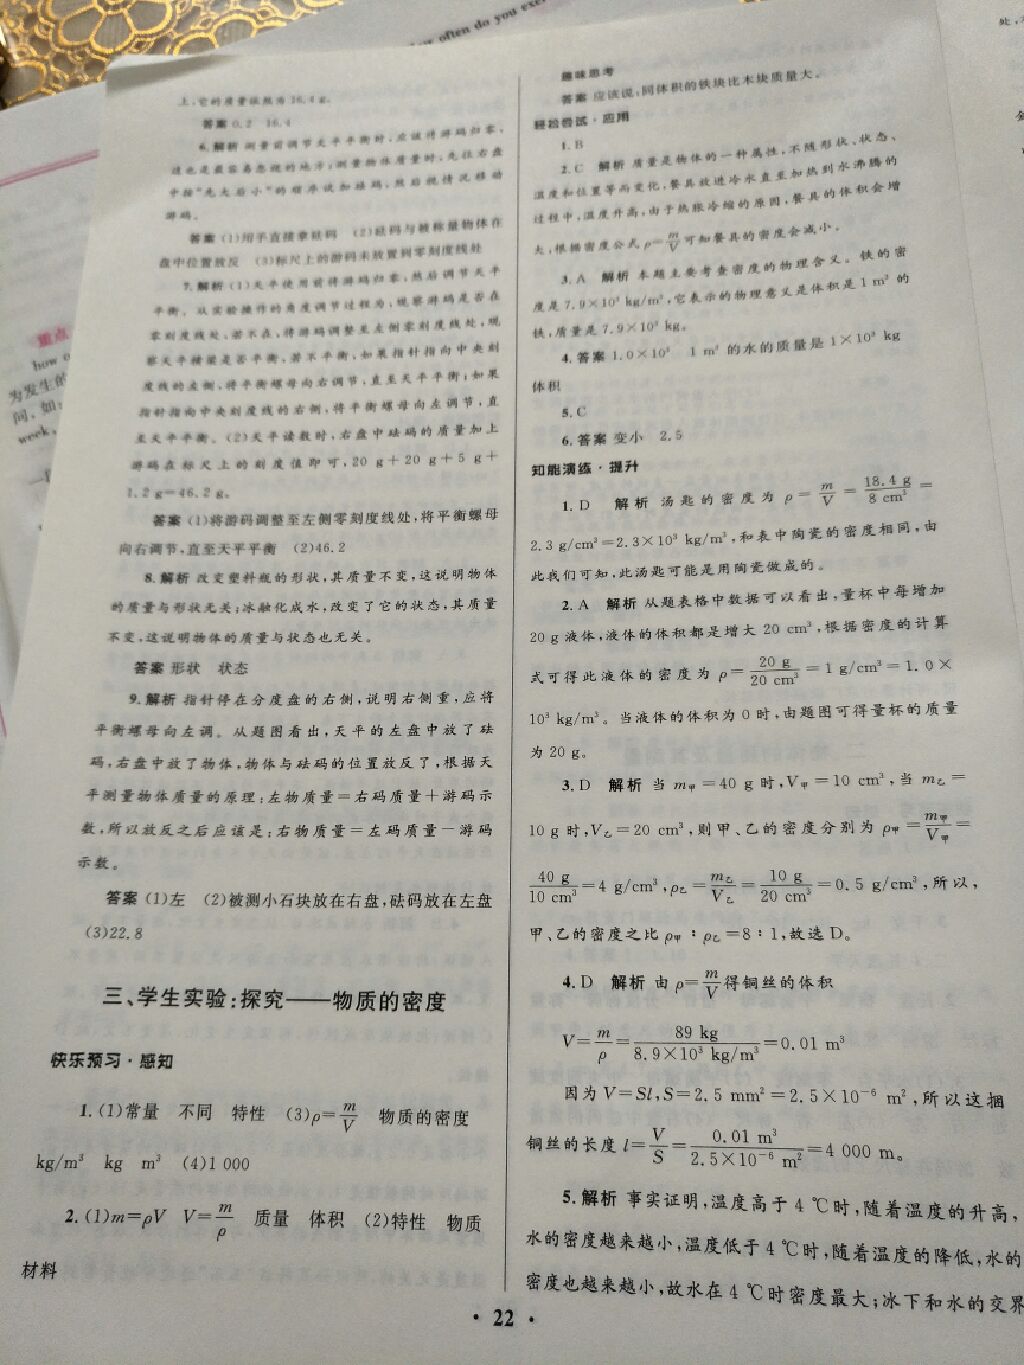 how often do you exer
处,
重点
how o
为发生的
间。如:
week.
上,它的质量读数为16.4 g。
答案 0.2 16.4
6.解析 测量前调节天平平衡时,应该将游码归零,
这也是最容易忽视的地方;测量物体质量时,先往右盘
中按“先大后小”的顺序试加砝码,然后视情况移动
游码。
答案 (1)用手直接拿砝码 (2)砝码与被称量物体在
盘中位置放反 (3)标尺上的游码未放置到零刻度线处
7.解析 (1)天平使用前将游码归零,然后调节天平
平衡。从实验操作的角度调节过程为:观察游码是否在
零刻度线处,若不在,将游码调整至左侧零刻度线处,观
察天平横梁是否平衡,若不平衡,如果指针指向中央刻
度线的左侧,将平衡螺母向右调节,直至天平平衡;如果
指针指向中央刻度线的右侧,将平衡螺母向左调节,直
至天平平衡。(2)天平读数时,右盘中砝码的质量加上
游码在标尺上的刻度值即可,20 g+20 g+5 g+
1.2 g=46.2 g。
答案 (1)将游码调整至左侧零刻度线处,将平衡螺母
向右调节,直至天平平衡 (2)46.2
8.解析 改变塑料瓶的形状,其质量不变,这说明物体
的质量与形状无关;冰融化成水,改变了它的状态,其质量
不变,这说明物体的质量与状态也无关。
答案 形状 状态
9.解析 指针停在分度盘的右侧,说明右侧重,应将
平衡螺母向左调。从题图看出,天平的左盘中放了砝
码,右盘中放了物体,物体与砝码的位置放反了,根据天
平测量物体质量的原理:左物质量=右码质量+游码示
数,所以放反之后应该是:右物质量=左码质量-游码
示数。
答案 (1)左 (2)被测小石块放在右盘,砝码放在左盘
(3)22.8
三、学生实验:探究——物质的密度
快乐预习·感知
1.(1)常量 不同 特性 (3)ρ=m/V 物质的密度
kg/m³ kg m³ (4)1 000
2.(1)m=ρV V=m/ρ 质量 体积 (2)特性 物质
材料
趣味思考
答案 应该说,同体积的铁块比木块质量大。
轻松尝试·应用
1.B
2.C 解析 质量是物体的一种属性,不随形状、状态、
温度和位置等而变化,餐具放进冷水直至加热到水沸腾的
过程中,温度升高,由于热胀冷缩的原因,餐具的体积会增
大,根据密度公式ρ=m/V可知餐具的密度会减小。
3.A 解析 本题主要考查密度的物理含义。铁的密
度是7.9×10³ kg/m³,它表示的物理意义是体积是1 m³的
铁,质量是7.9×10³ kg。
4.答案 1.0×10³ 1 m³的水的质量是1×10³ kg
体积
5.C
6.答案 变小 2.5
知能演练·提升
1.D 解析 汤匙的密度为ρ=m/V=18.4 g/8 cm³=
2.3 g/cm³=2.3×10³ kg/m³,和表中陶瓷的密度相同,由
此我们可知,此汤匙可能是用陶瓷做成的。
2.A 解析 从题表格中数据可以看出,量杯中每增加
20 g液体,液体的体积都是增大20 cm³,根据密度的计算
式可得此液体的密度为ρ=20 g/20 cm³=1 g/cm³=1.0×
10³ kg/m³。当液体的体积为0时,由题图可得量杯的质量
为20 g。
3.D 解析 当m甲=40 g时,V甲=10 cm³,当m乙=
10 g时,V乙=20 cm³,则甲、乙的密度分别为ρ甲=m甲/V甲=
40 g/10 cm³=4 g/cm³,ρ乙=m乙/V乙=10 g/20 cm³=0.5 g/cm³,所以,
甲、乙的密度之比ρ甲∶ρ乙=8∶1,故选D。
4.D 解析 由ρ=m/V得铜丝的体积
V=m/ρ=89 kg/8.9×10³ kg/m³=0.01 m³
因为V=Sl,S=2.5 mm²=2.5×10⁻⁶ m²,所以这捆
铜丝的长度l=V/S=0.01 m³/2.5×10⁻⁶ m²=4 000 m。
5.解析 事实证明,温度高于4 ℃时,随着温度的升高,
水的密度越来越小,温度低于4 ℃时,随着温度的降低,水的
密度也越来越小,故水在4 ℃时密度最大;冰下和水的交界
· 22 ·